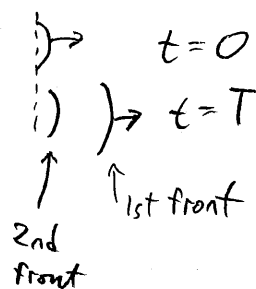 t = 0
t = T
1st front
2nd
front